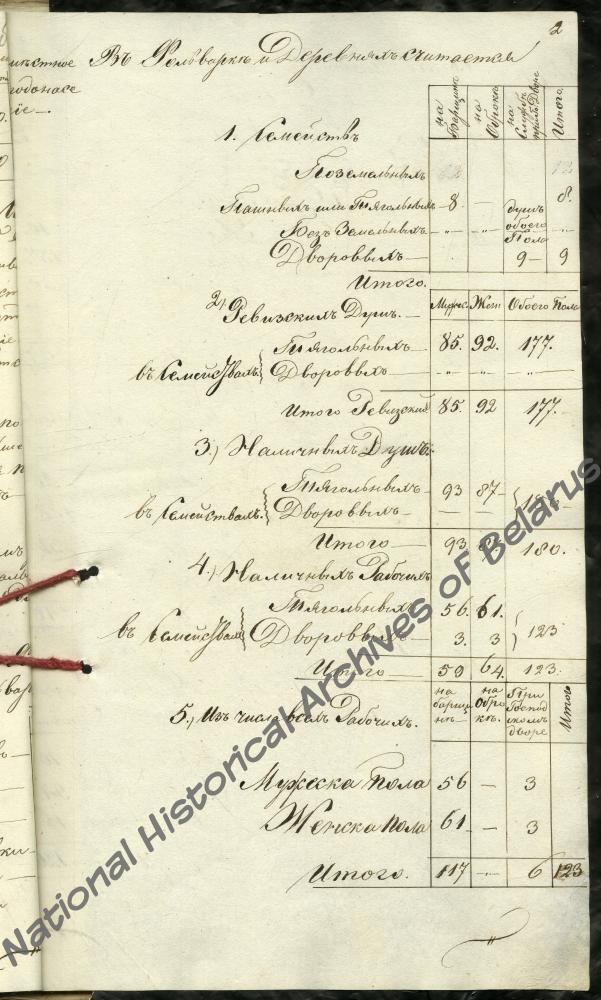 2
Въ Фольваркѣ и Деревняхъ считается
на Барщинѣ | на Оброкѣ | на Службѣ при Дворѣ | Итого.
1. Семействъ
Поземельныхъ
Пашныхъ или Тяголныхъ — 8. — 8.
душъ обоего Пола
Безъ Земельныхъ — „ — „ — „
Дворовыхъ — 9 — 9
Итого.
2) Ревизскихъ Душъ. — Мужес. | Жен | Обоего Пола
въ Семействахъ { Тяголныхъ — 85. 92. 177.
Дворовыхъ — „ „ „
Итого Ревизский 85. 92 177.
3.) Наличныхъ Душъ.
въ Семействахъ. { Тяголныхъ — 93 87 —
Дворовыхъ — — —
Итого — 93 180.
4.) Наличныхъ Рабочихъ
въ Семействахъ { Тяголныхъ 56. 61.
Дворовыхъ 3. 3 } 123
Итого — 59 64. 123.
5.) Изъ числа всехъ Рабочихъ. | на барщинѣ — | на Оброкѣ. | При Господскомъ дворе | Итого
Мужеска Пола 56 — 3
Женска Пола 61 — 3
Итого. 117 — 6 123
National Historical Archives of Belarus